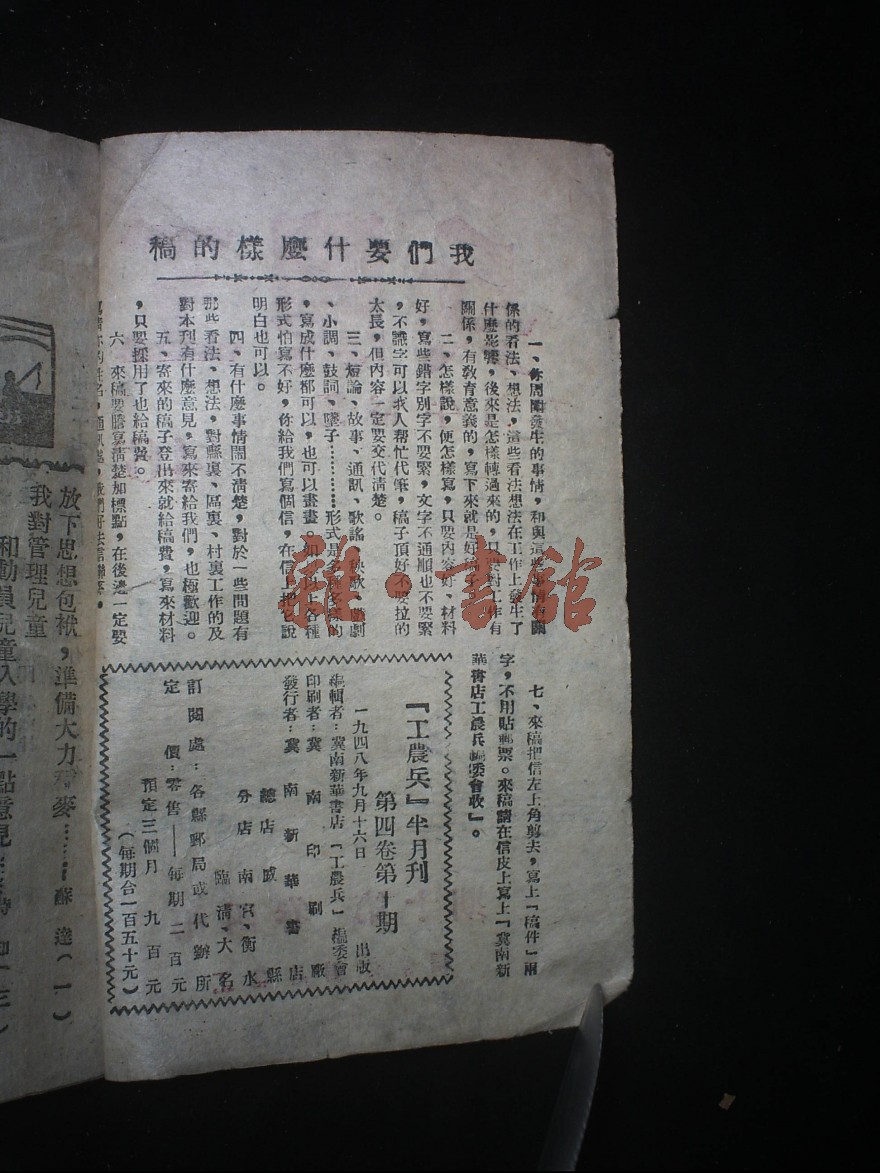 我們要什麼樣的稿
一、你周圍發生的事情，和與這些事情有關
係的看法、想法，這些看法想法在工作上發生了
什麼影響，後來是怎樣轉過來的，只要對工作有
關係，有教育意義的，寫下來就是好稿子。
二、怎樣說，便怎樣寫，只要內容好、材料
好，寫些錯字別字不要緊，文字不通順也不要緊
，不識字可以找人帮忙代筆，稿子頂好不要拉的
太長，但內容一定要交代清楚。
三、短論、故事、通訊、歌謠、秧歌、戲劇
、小調、鼓詞、墜子…………形式是各種多樣的
，寫成什麼都可以，也可以畫畫。如果以上各種
形式怕寫不好，你給我們寫個信，在信上把它說
明白也可以。
四、有什麼事情鬧不清楚，對於一些問題有
那些看法、想法，對縣裏、區裏、村裏工作的及
對本刊有什麼意見，寫來寄給我們，也極歡迎。
五、寄來的稿子登出來就給稿費，寫來材料
，只要採用了也給稿費。
六、來稿要謄寫清楚加標點，在後邊一定要
寫清你的姓名，通訊處，我們好去信聯系。
七、來稿把信左上角剪去，寫上「稿件」兩
字，不用貼郵票。來稿請在信皮上寫上「冀南新
華書店工農兵編委會收」。
『工農兵』半月刊
第四卷第十期
一九四八年九月十六日 出版
編輯者：冀南新華書店「工農兵」編委會
印刷者：冀南印刷廠
發行者：冀南新華書店
總店威縣
分店南宮、衡水
臨清、大名
訂閱處：各縣郵局或代辦所
定價：零售——每期二百元
預定三個月 九百元
（每期合一百五十元）
放下思想包袱，準備大力種麥……蘇達（一）
我對管理兒童
和動員兒童入學的一點意見
雜·書館